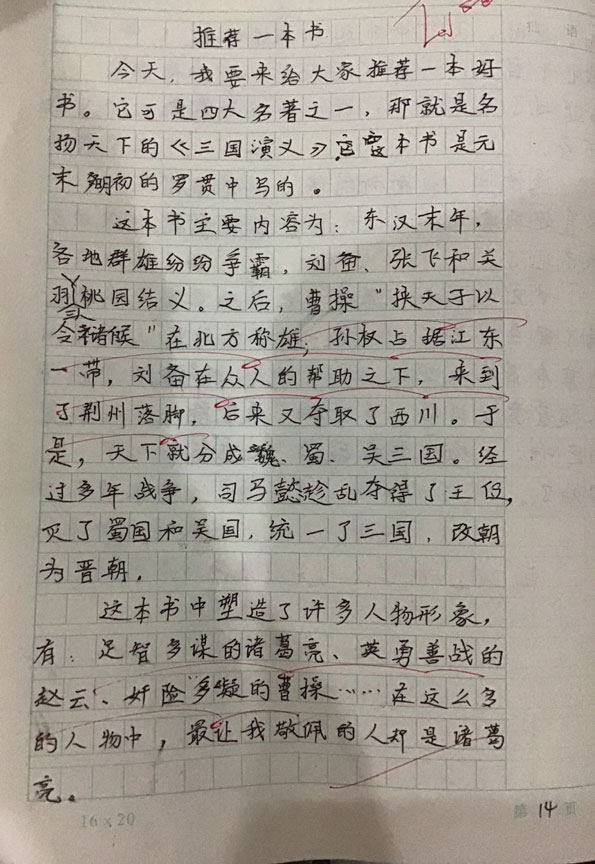 推荐一本书
今天,我要来给大家推荐一本好
书。它可是四大名著之一,那就是名
扬天下的《三国演义》,这本书是元
末明初的罗贯中写的。
这本书主要内容为:东汉末年,
各地群雄纷纷争霸,刘备、张飞和关
羽桃园结义。之后,曹操"挟天子以
令诸候"在北方称雄,孙权占据江东
一带,刘备在众人的帮助之下,来到
了荆州落脚,后来又夺取了西川。于
是,天下就分成魏、蜀、吴三国。经
过多年战争,司马懿趁乱夺得了王位,
灭了蜀国和吴国,统一了三国,改朝
为晋朝.
这本书中塑造了许多人物形象,
有:足智多谋的诸葛亮、英勇善战的
赵云、奸险多疑的曹操……在这么多
的人物中,最让我敬佩的人却是诸葛
亮。
16×20
第 14 页